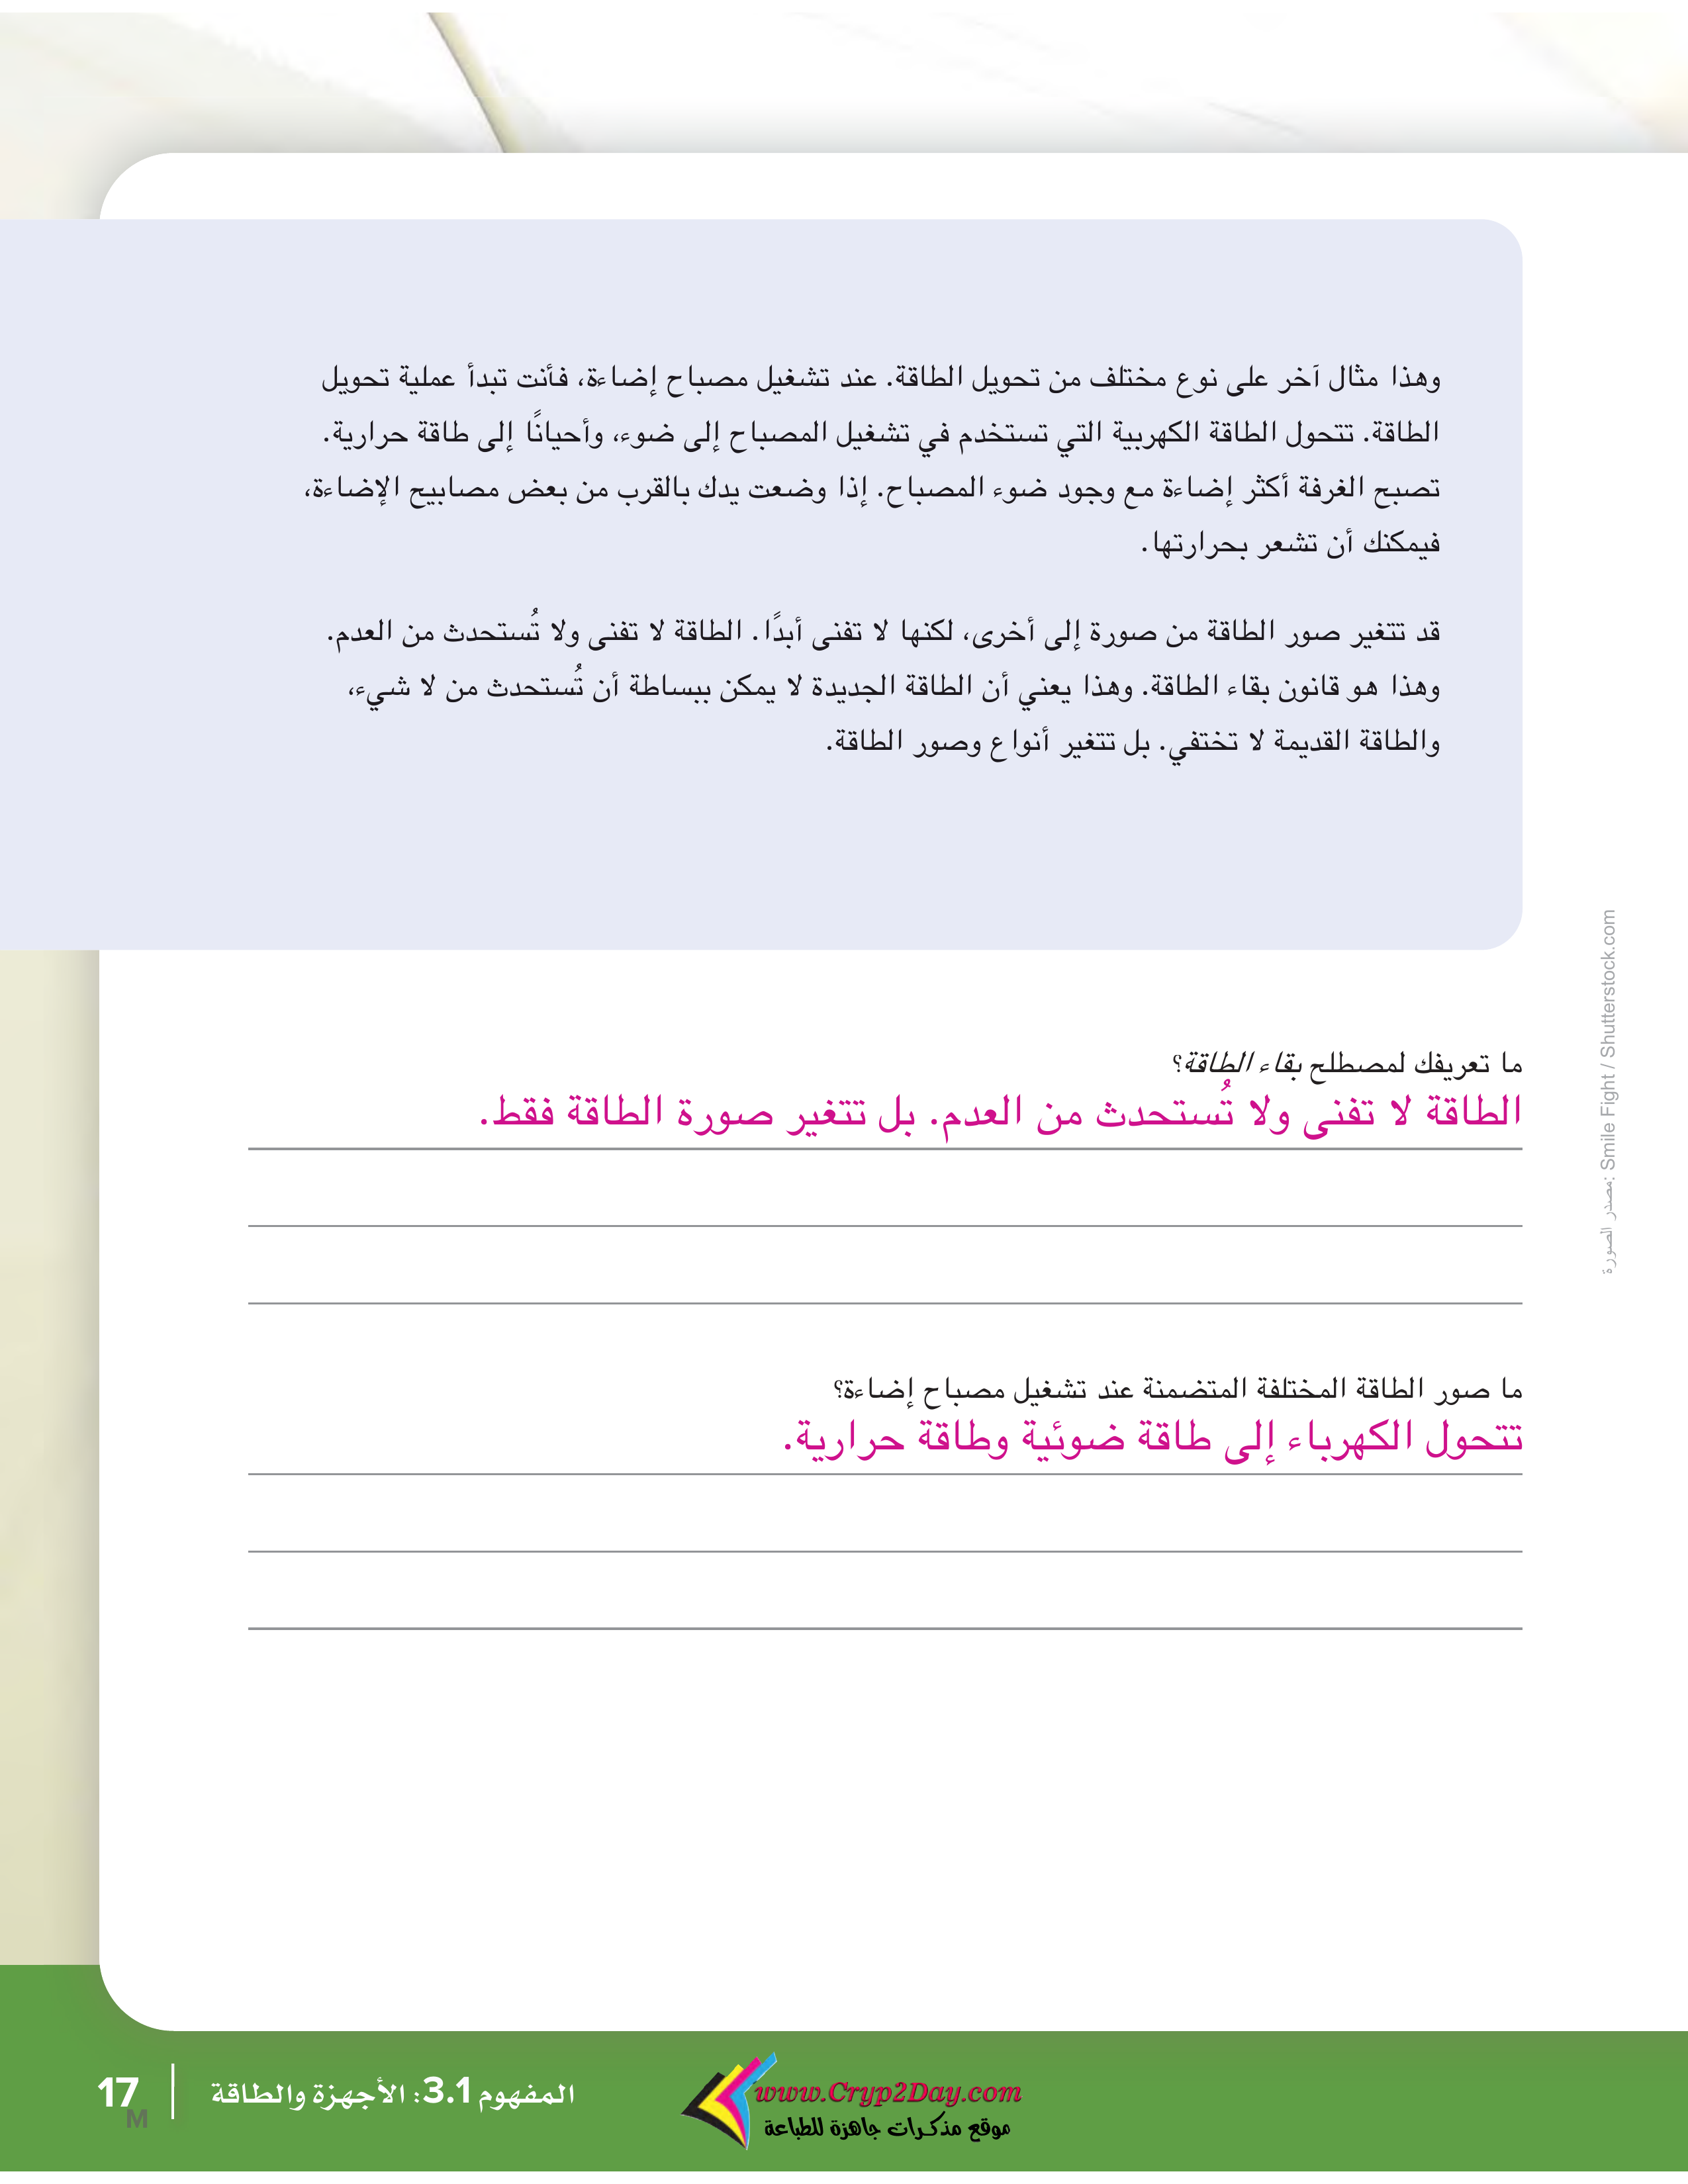 وهذا مثال آخر على نوع مختلف من تحويل الطاقة. عند تشغيل مصباح إضاءة، فأنت تبدأ عملية تحويل
الطاقة. تتحول الطاقة الكهربية التي تستخدم في تشغيل المصباح إلى ضوء، وأحيانًا إلى طاقة حرارية.
تصبح الغرفة أكثر إضاءة مع وجود ضوء المصباح. إذا وضعت يدك بالقرب من بعض مصابيح الإضاءة،
فيمكنك أن تشعر بحرارتها.
قد تتغير صور الطاقة من صورة إلى أخرى، لكنها لا تفنى أبدًا. الطاقة لا تفنى ولا تُستحدث من العدم.
وهذا هو قانون بقاء الطاقة. وهذا يعني أن الطاقة الجديدة لا يمكن ببساطة أن تُستحدث من لا شيء،
والطاقة القديمة لا تختفي. بل تتغير أنواع وصور الطاقة.
مصدر الصورة: Smile Fight / Shutterstock.com
ما تعريفك لمصطلح بقاء الطاقة؟
الطاقة لا تفنى ولا تُستحدث من العدم. بل تتغير صورة الطاقة فقط.
ما صور الطاقة المختلفة المتضمنة عند تشغيل مصباح إضاءة؟
تتحول الكهرباء إلى طاقة ضوئية وطاقة حرارية.
www.Cryp2Day.com
موقع مذكرات جاهزة للطباعة
المفهوم 3.1: الأجهزة والطاقة
17
M